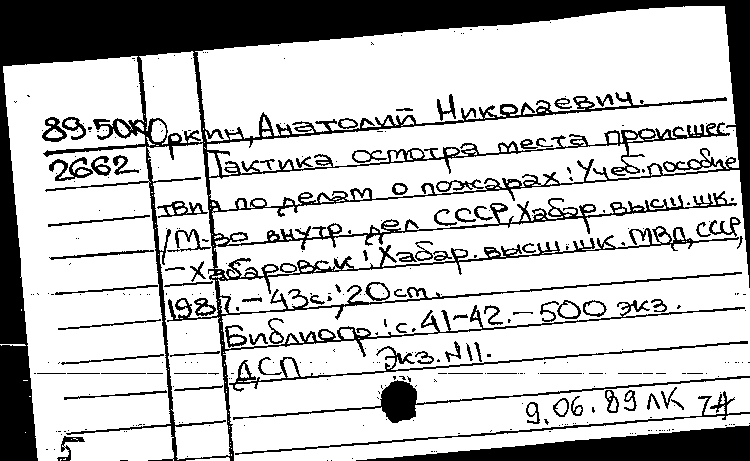 89-50К Юркин, Анатолий Николаевич.
2662 Тактика осмотра места происшес-
твия по делам о пожарах: Учеб. пособие
/М-во внутр. дел СССР, Хабар. высш. шк.
-Хабаровск: Хабар. высш. шк. МВД СССР,
1987.-43с.; 20 cm.
Библиогр.: с.41-42.-500 экз.
ДСП. Экз. N11.
9.06.89 ЛК
5